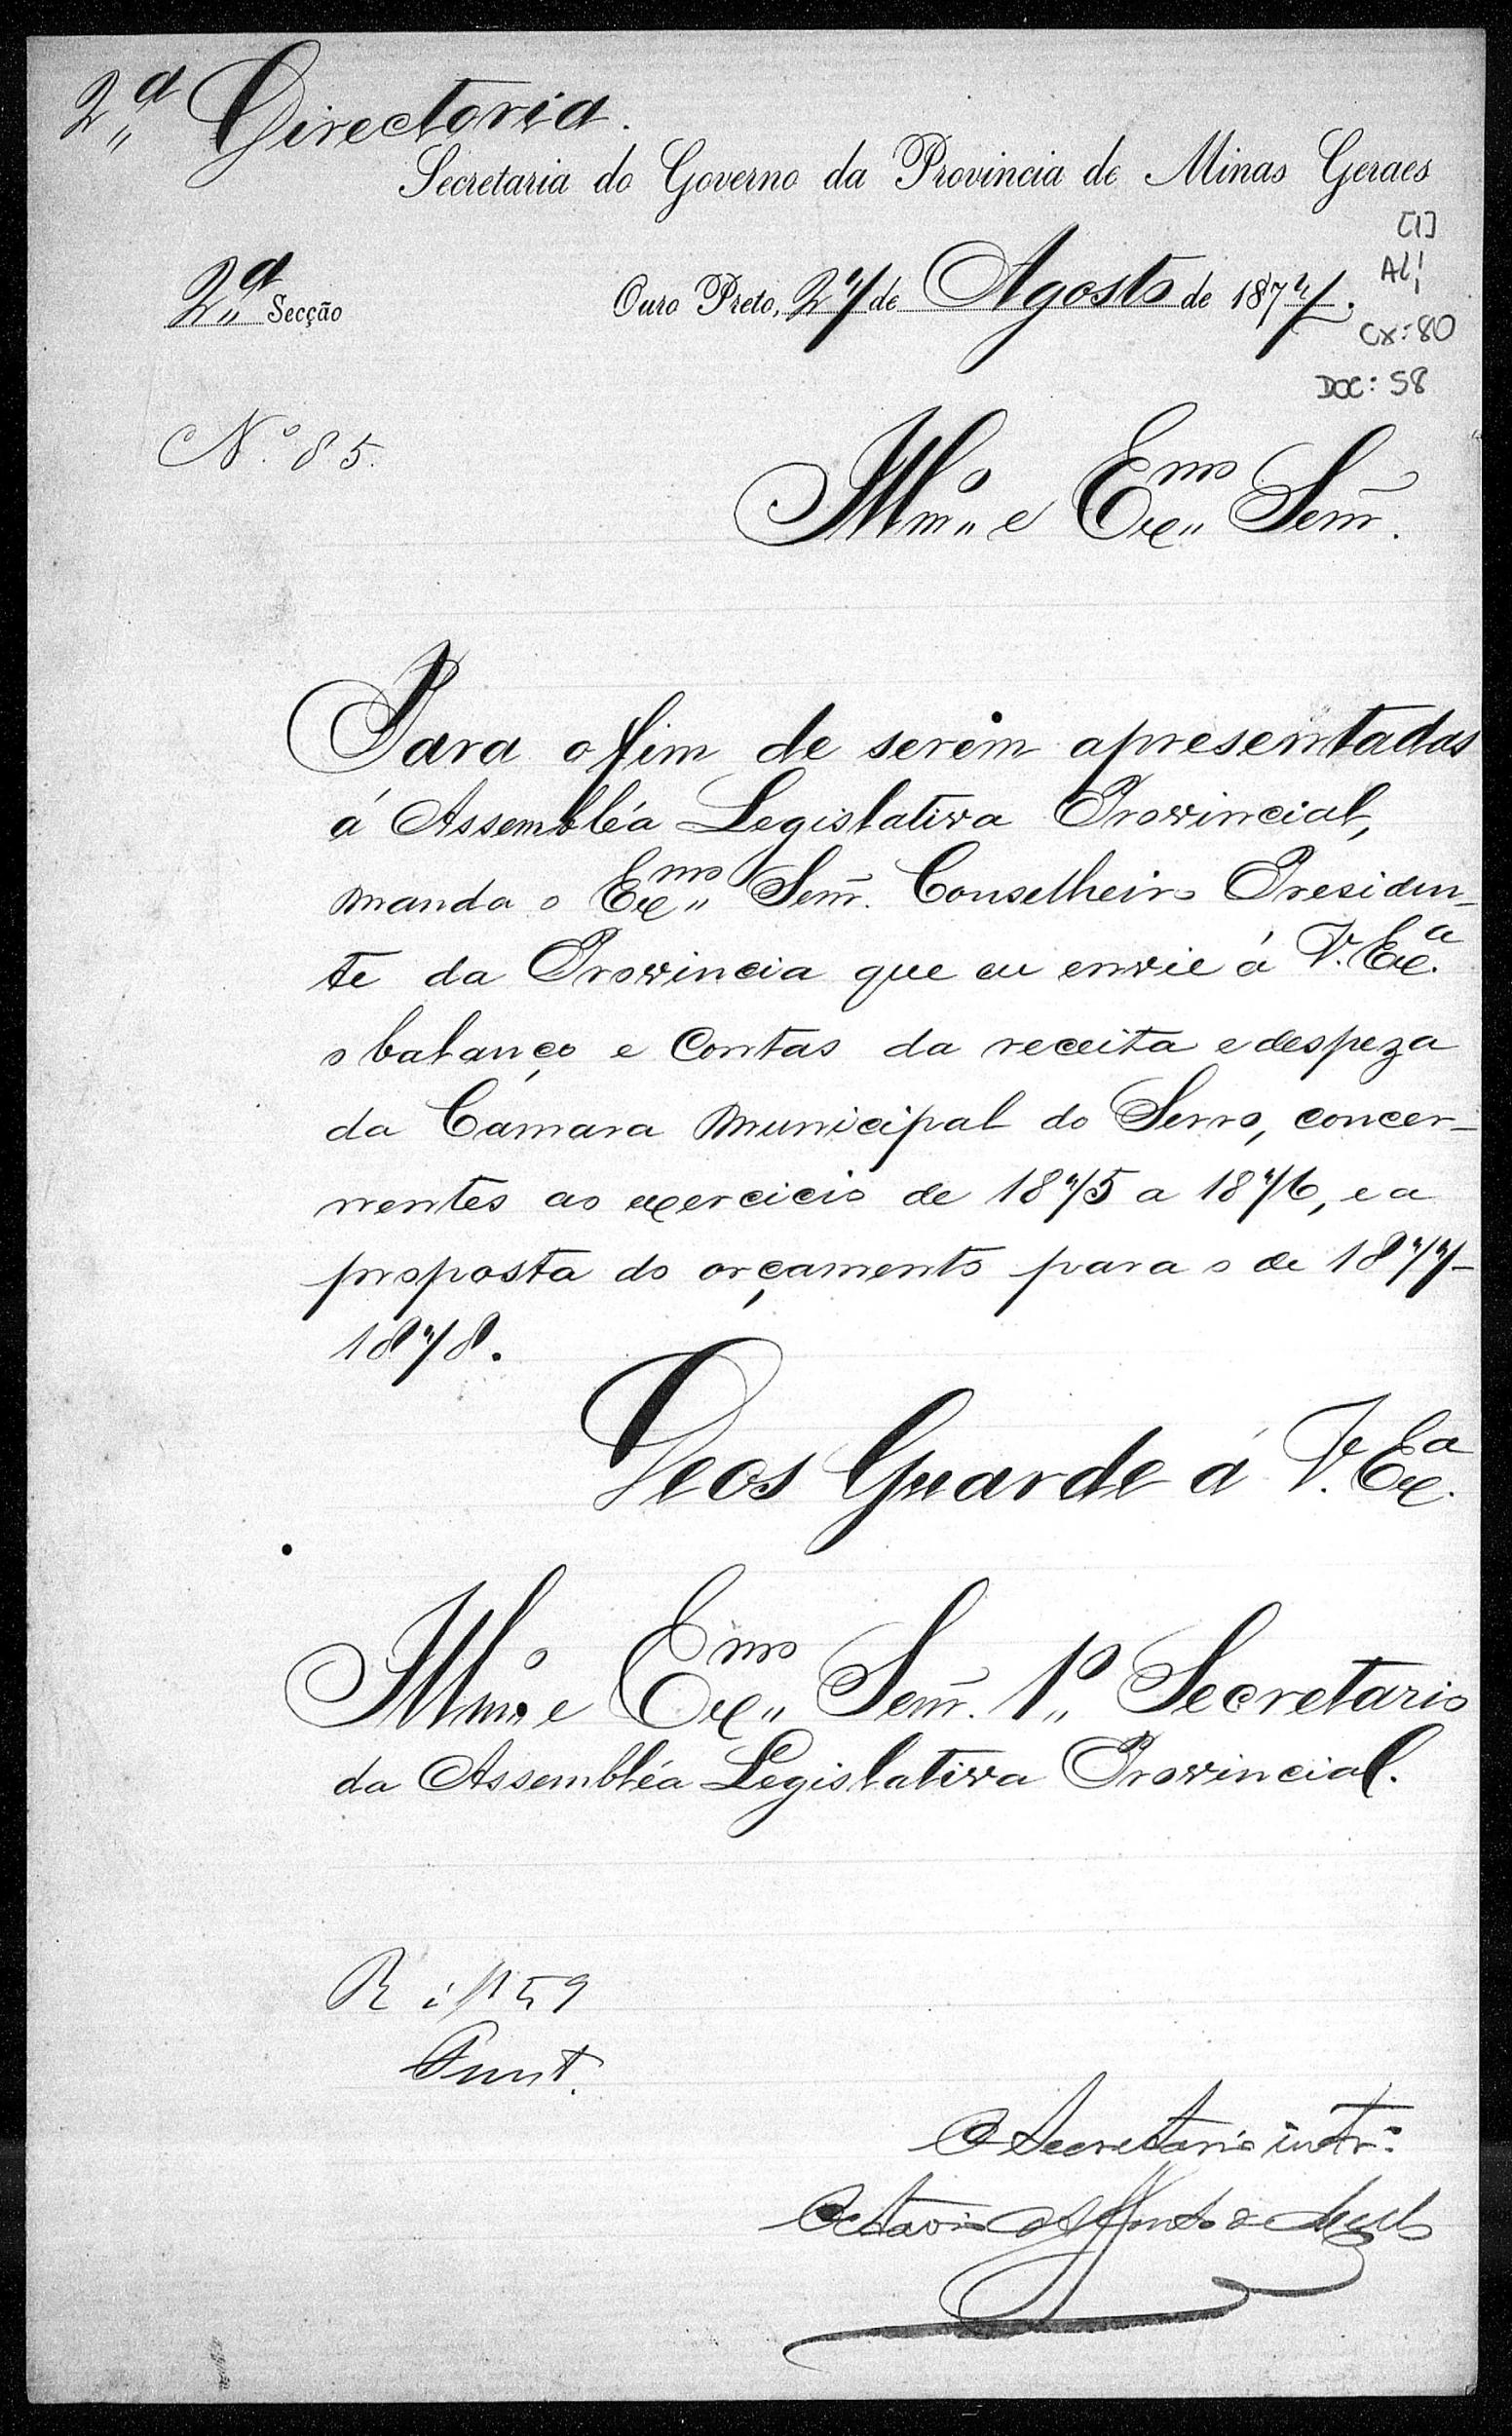 2ª Directoria.
Secretaria do Governo da Provincia de Minas Geraes
2ª Secção
Ouro Preto, 27 de Agosto de 1877.
[1]
AL¹
CX: 80
DOC: 58
Nº 85.
Illmº e Exmo Senr.
Para o fim de serem apresentadas
á Assembléa Legislativa Provincial,
manda o Exmo Senr. Conselheiro Presiden-
te da Provincia que eu envie á V. Exª.
o balanço e Contas da receita e despeza
da Camara Municipal do Serro, concer-
nentes ao exercicio de 1875 a 1876, e a
proposta do orçamento para o de 1877-
1878.
Deos Guarde á V. Exª.
Illmº e Exmo Senr. 1º Secretario
da Assembléa Legislativa Provincial.
O Secretario intrº
Octavio Affonso de Mello